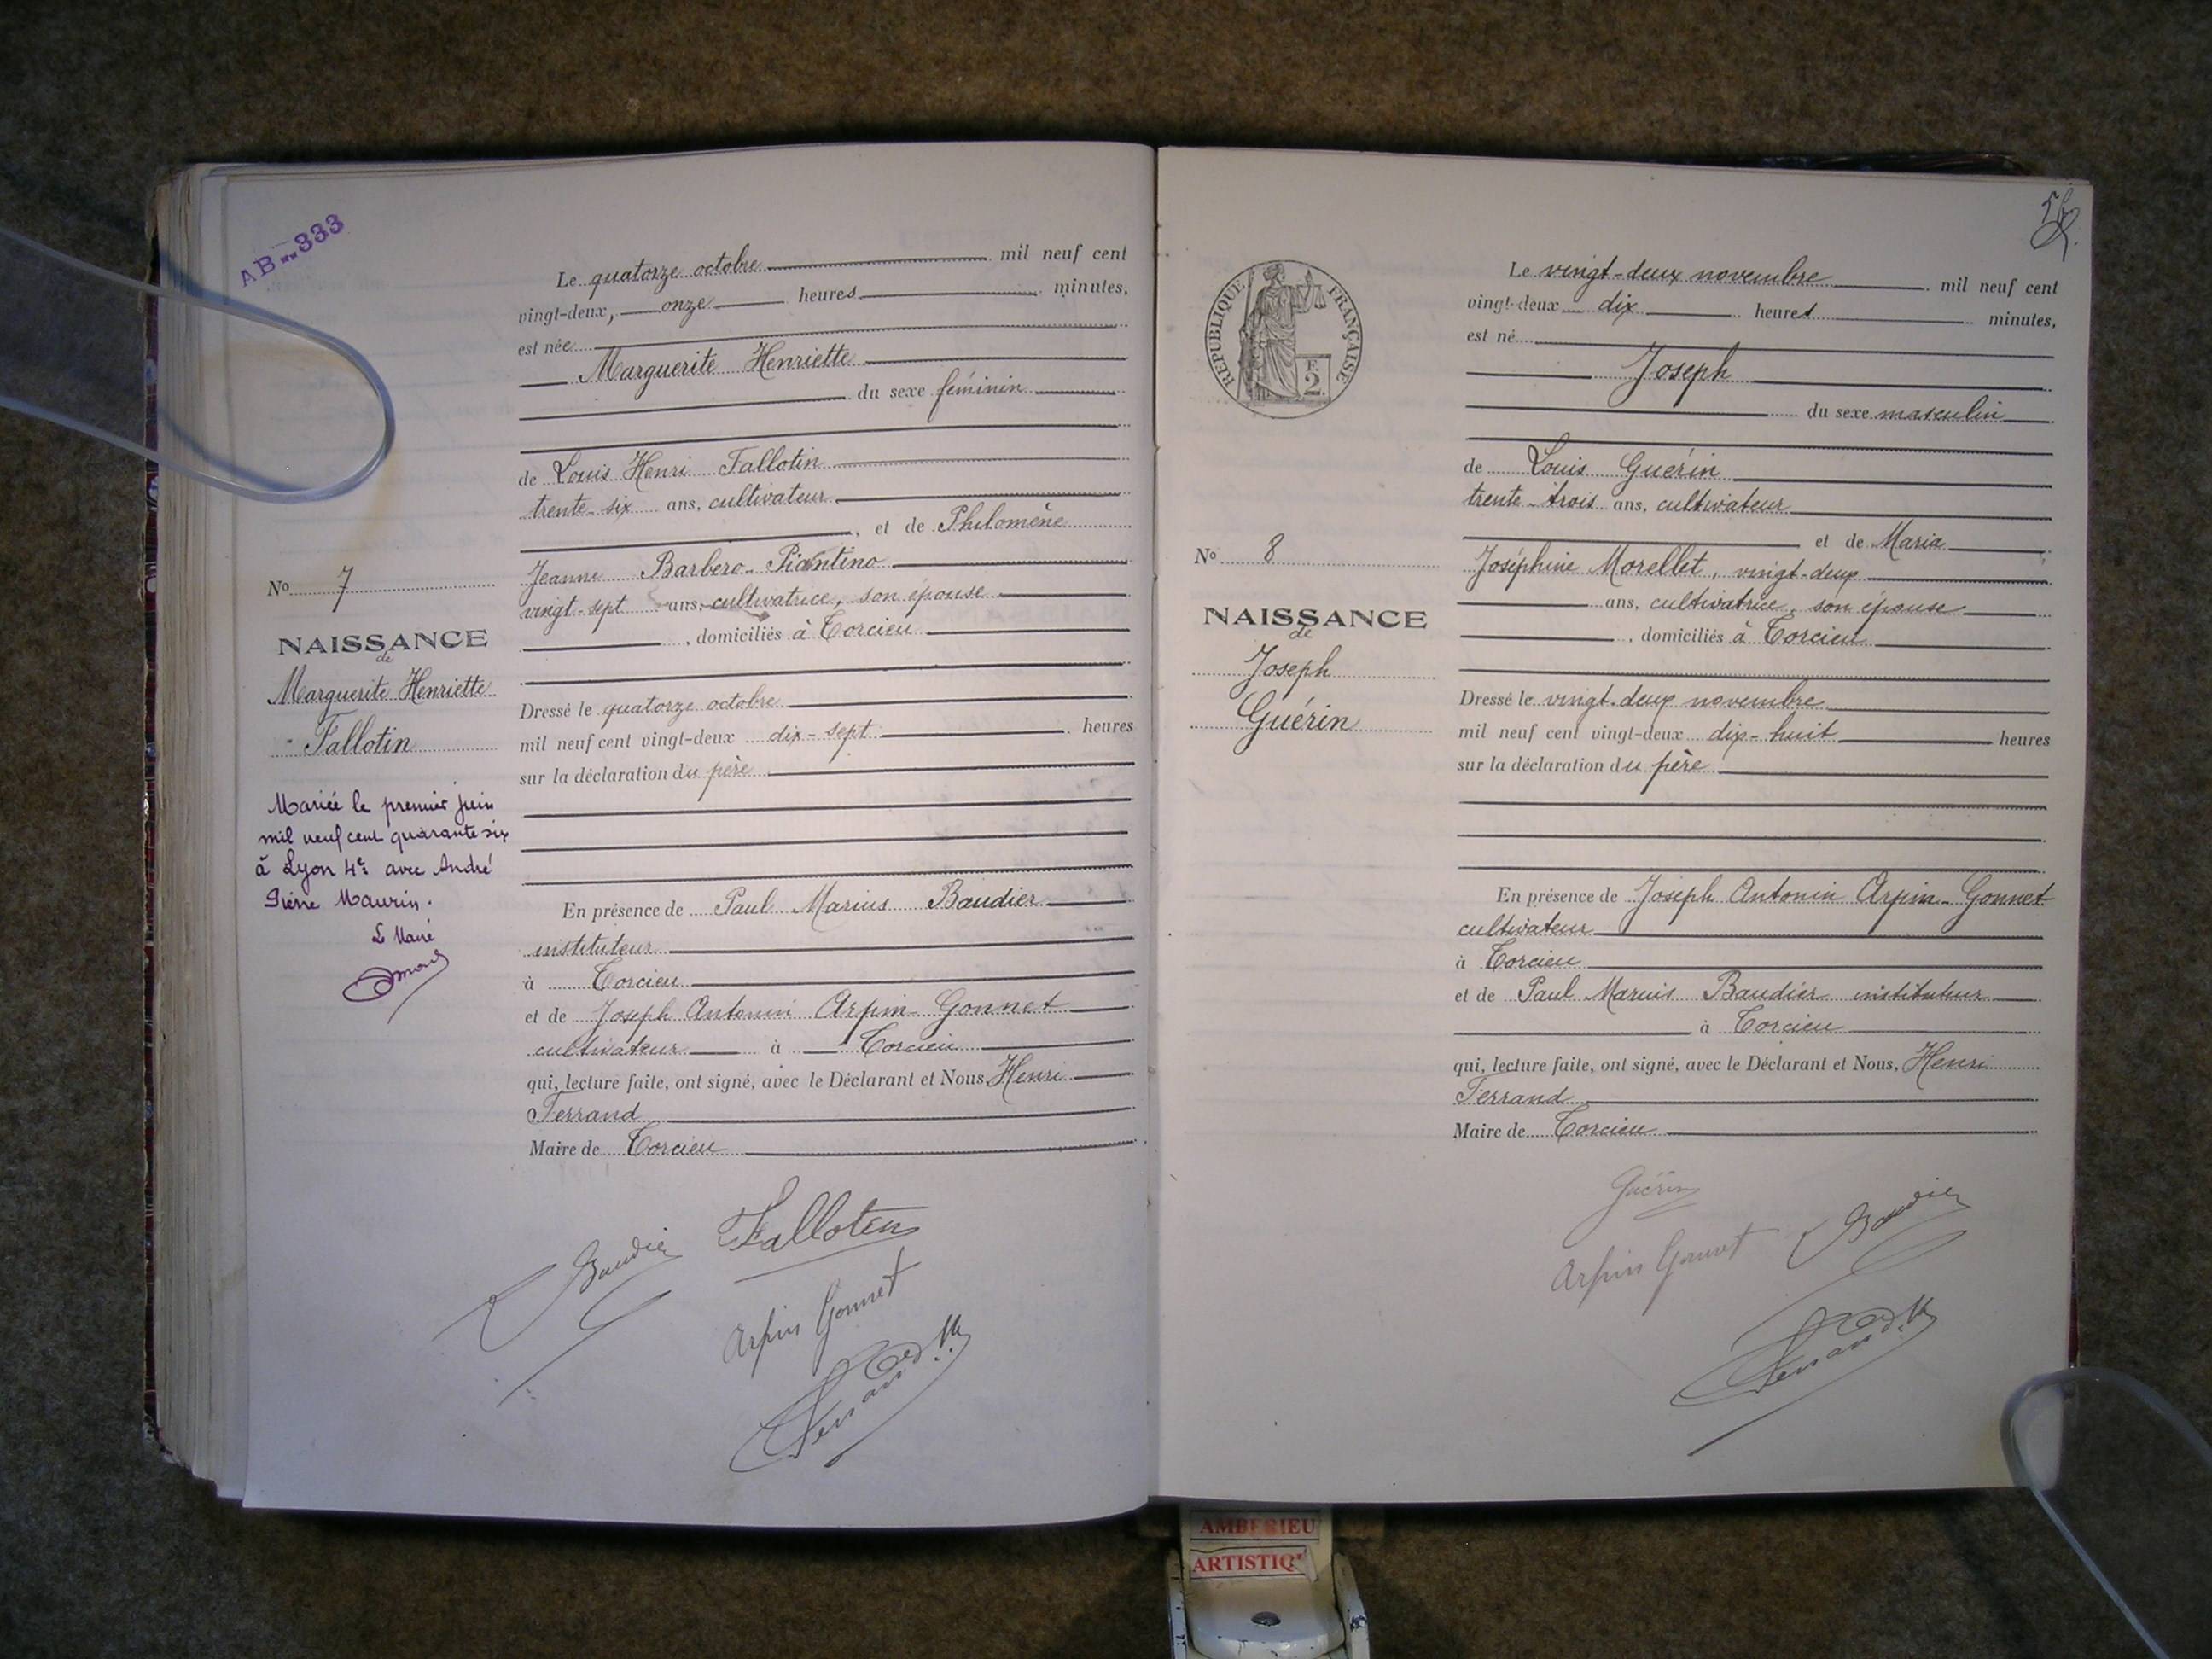 AB 333
Le quatorze octobre mil neuf cent
vingt-deux, onze heures minutes,
est née
Marguerite Henriette
du sexe féminin
de Louis Henri Fallotin
trente-six ans, cultivateur
, et de Philomène
Jeanne Barbero-Piantino
vingt-sept ans, cultivatrice, son épouse
, domiciliés à Torcieu
Dressé le quatorze octobre
mil neuf cent vingt-deux dix-sept heures
sur la déclaration du père
En présence de Paul Marius Baudier
instituteur
à Torcieu
et de Joseph Antonin Arpin-Gonnet
cultivateur à Torcieu
qui, lecture faite, ont signé, avec le Déclarant et Nous, Henri
Ferrand
Maire de Torcieu
No 7
NAISSANCE
de
Marguerite Henriette
Fallotin
Mariée le premier juin
mil neuf cent quarante six
à Lyon 4e avec André
Pierre Maurin.
Le Maire
Baudier Fallotin
Arpin Gonnet
Ferrand
RÉPUBLIQUE FRANÇAISE
F
2
Le vingt-deux novembre mil neuf cent
vingt-deux dix heures minutes,
est né
Joseph
du sexe masculin
de Louis Guérin
trente-trois ans, cultivateur
et de Maria
Joséphine Morellet, vingt-deux
ans, cultivatrice, son épouse
, domiciliés à Torcieu
Dressé le vingt-deux novembre
mil neuf cent vingt-deux dix-huit heures
sur la déclaration du père
En présence de Joseph Antonin Arpin-Gonnet
cultivateur
à Torcieu
et de Paul Marius Baudier instituteur
à Torcieu
qui, lecture faite, ont signé, avec le Déclarant et Nous, Henri
Ferrand
Maire de Torcieu
No 8
NAISSANCE
de
Joseph
Guérin
Guérin
Arpin Gonnet Baudier
Ferrand
AMBERIEU
ARTISTIQ